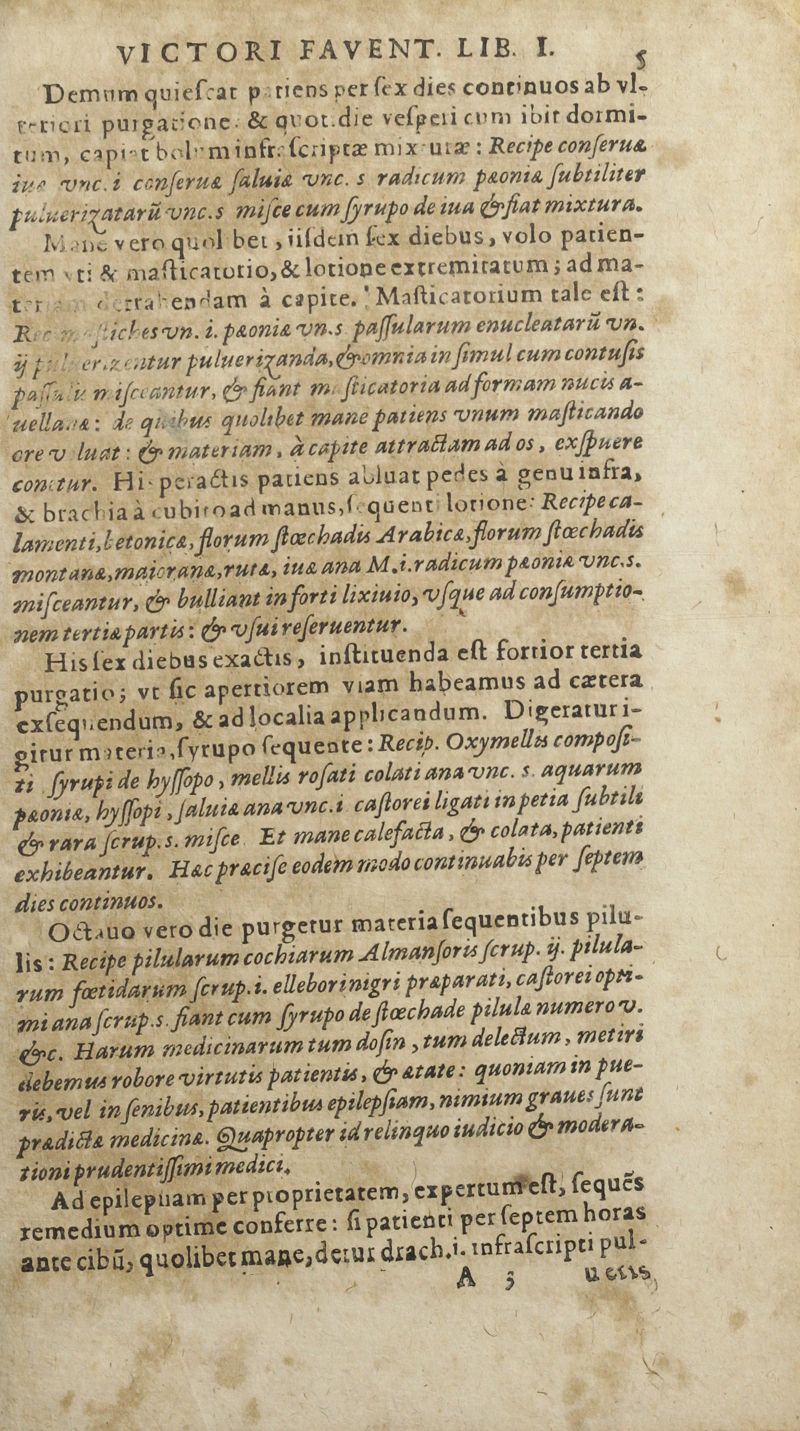 VICTORI FAVENT. LIB. I. 5
Demum quieſcat patiens per ſex dies continuos ab vl-
teriori purgatione. & quotidie veſperi cum ibit dormi-
tum, capiat bolum infraſcriptæ mixturæ: Recipe conſeruæ
iuæ vnc. i conſeruæ ſaluiæ vnc. s radicum pæoniæ ſubtiliter
puluerizatarū vnc. s miſce cum ſyrupo de iua & fiat mixtura.
Mane vero quolibet, iiſdem ſex diebus, volo patien-
tem vti & maſticatorio, & lotione extremitatum; ad ma-
trahendam à capite. Maſticatorium tale eſt:
vn. i. pæoniæ vn. s paſſularum enucleatarū vn.
ij puluerizanda, & omnia in ſimul cum contuſis
paſſulis miſceantur, & fiant maſticatoria ad formam nucis a-
uellanæ: de quibus quolibet mane patiens vnum maſticando
ore voluat: & materiam, à capite attractam ad os, exſpuere
conetur. His peractis patiens abluat pedes à genu infra,
& brachia à cubito ad manus, ſequenti lotione: Recipe ca-
lamenti, betonicæ, florum ſtœchadis Arabicæ, florum ſtœchadis
montanæ, maioranæ, rutæ, iuæ ana M. i. radicum pæoniæ vnc. s.
miſceantur, & bulliant in forti lixiuio, vſque ad conſumptio-
nem tertiæ partis: & vſui reſeruentur.
His ſex diebus exactis, inſtituenda eſt fortior tertia
purgatio; vt ſic apertiorem viam habeamus ad cætera
exſequendum, & ad localia applicandum. Digeratur i-
gitur materia, ſyrupo ſequente: Recip. Oxymellis compoſi-
ti ſyrupi de hyſſopo, mellis roſati colati ana vnc. s. aquarum
pæoniæ, hyſſopi, ſaluiæ ana vnc. i caſtorei ligati in petia ſubtili
& rara ſcrup. s. miſce. Et mane calefacta, & colata, patienti
exhibeantur. Hæc præciſe eodem modo continuabis per ſeptem
dies continuos.
Octauo vero die purgetur materia ſequentibus pilu-
lis: Recipe pilularum cochiarum Almanſoris ſcrup. ij. pilula-
rum fœtidarum ſcrup. i. ellebori nigri præparati, caſtorei opti-
mi ana ſcrup. s. fiant cum ſyrupo de ſtœchade pilulæ numero v.
&c. Harum medicinarum tum doſin, tum delectum, metiri
debemus robore virtutis patientis, & ætate: quoniam in pue-
ris, vel in ſenibus, patientibus epilepſiam, nimium graues ſunt
prædictæ medicinæ. Quapropter id relinquo iudicio & modera-
tioni prudentiſſimi medici.
Ad epilepſiam per proprietatem, expertum eſt, ſequēs
remedium optime conferre: ſi patienti per ſeptem horas
ante cibū, quolibet mane, detur drach. i. infraſcripti pul-
A 3 ueris,